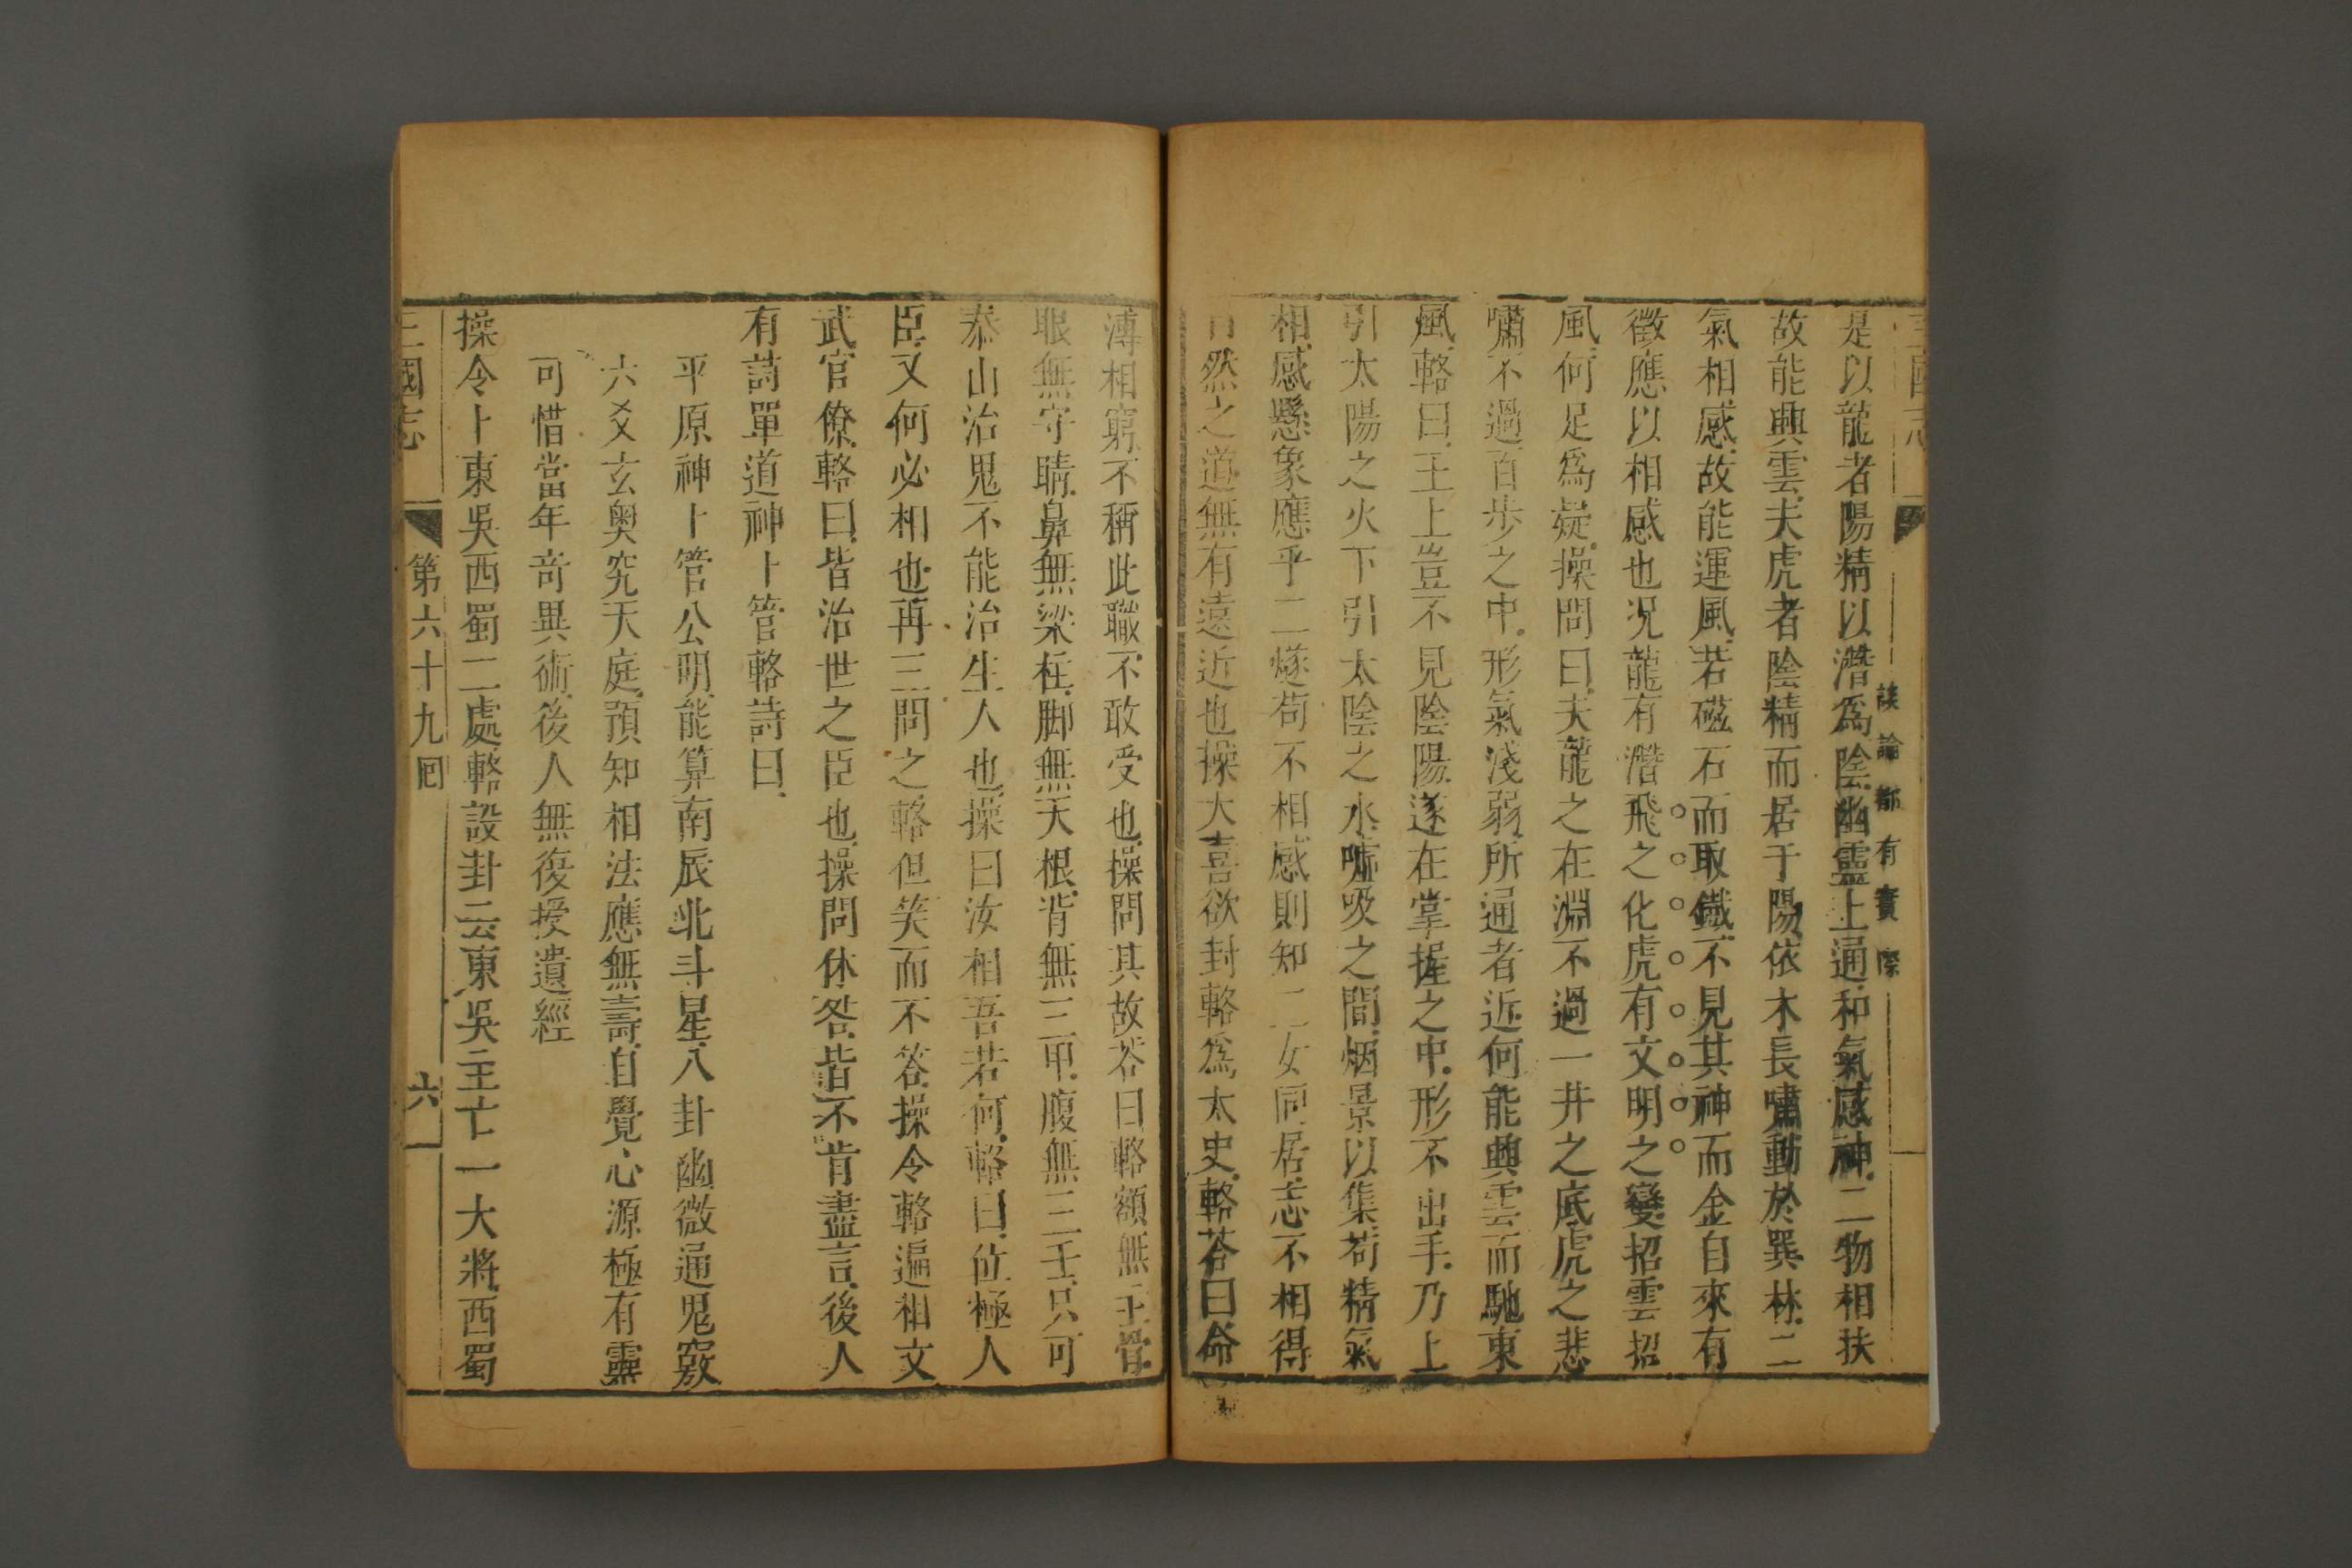 三國志
談論都有實際
是以龍者陽精以潛爲陰幽靈上通和氣感神二物相扶
故能興雲夫虎者陰精而居于陽依木長嘯動於巽林二
氣相感故能運風若磁石而取鐵不見其神而金自來有
徵應以相感也况龍有潛飛之化虎有文明之變招雲招
風何足爲疑操問曰夫龍之在淵不過一井之底虎之悲
嘯不過百步之中形氣淺弱所通者近何能興雲而馳東
風輅曰王上豈不見陰陽遂在掌握之中形不出手乃上
引太陽之火下引太陰之水噓吸之間烟景以集苟精氣
相感懸象應乎二燧苟不相感則知二女同居志不相得
自然之道無有遠近也操大喜欲封輅爲太史輅荅曰命
薄相窮不稱此職不敢受也操問其故荅曰輅額無主骨
眼無守睛鼻無梁柱脚無天根背無三甲腹無三壬只可
泰山治鬼不能治生人也操曰汝相吾若何輅曰位極人
臣又何必相也再三問之輅但笑而不答操令輅遍相文
武官僚輅曰皆治世之臣也操問休咎皆不肯盡言後人
有詩單道神卜管輅詩曰
平原神卜管公明能算南辰北斗星八卦幽微通鬼竅
六爻玄奧究天庭預知相法應無壽自覺心源極有靈
可惜當年竒異術後人無復授遺經
操令卜東吳西蜀二處輅設卦云東吳主亡一大將西蜀
三國志 第六十九囘 六